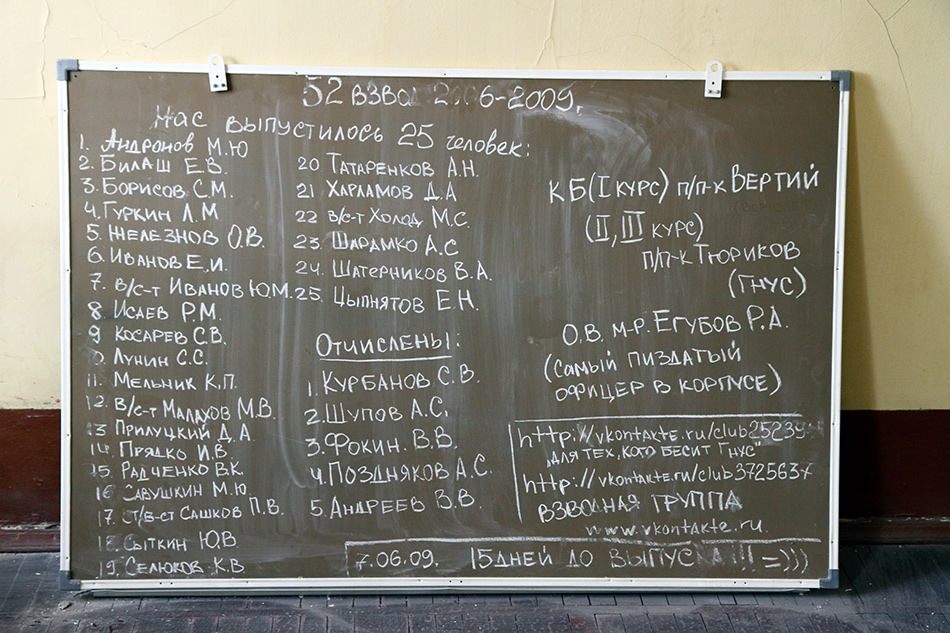 52 ВЗВО 2006-2009г.
Нас выпустилось 25 человек:
1. Андронов М.Ю
2. Билаш Е.В.
3. Борисов С.М.
4. Гуркин Л.М
5. Железнов О.В.
6. Иванов Е.И.
7. В/с-т Иванов Ю.М.
8 Исаев Р.М.
9 Косарев С.В.
0. Лунин С.С.
11. Мельник К.П.
12. В/с-т Малахов М.В.
13 Прилуцкий Д.А.
14. Прядко И.В.
15. Радченко В.К.
16 Савушкин М.Ю
17. ст/в-ст Сашков П.В.
18. Сыткин Ю.В
19. Селюков К.В
20 Татаренков А.Н.
21 Харламов Д.А
22 в/с-т Холод М.С.
23. Шарамко А.С
24. Шатерников В.А.
25. Цыпнятов Е.Н.
Отчислены:
1. Курбанов С.В.
2. Шупов А.С.
3. Фокин. В.В.
4. Поздняков А.С.
5. Андреев В.В.
КБ (I курс) п/п-к Вертий
(II, III курс)
п/п-к Тюриков
(Гнус)
О.В. м-р. Егубов Р.А.
(самый пиздатый
офицер в корпусе)
http://vkontakte.ru/club25239
"для тех, кого бесит Гнус"
http://vkontakte.ru/club3725637
ВЗВОДНАЯ ГРУППА
www.vkontakte.ru.
7.06.09. 15 дней до выпуска!!! =)))